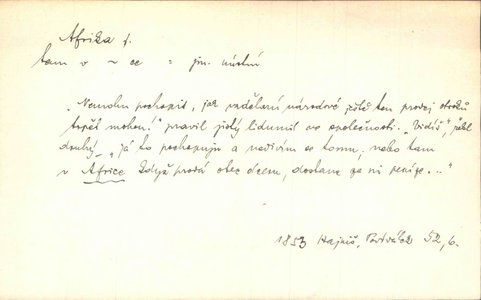 Afrika f.
tam v ~ ce = jm. místní
„Nemohu pochopit, jak vzdělaní národové ještě ten prodej otroků
trpět mohou!" pravil jistý lidumil ve společnosti. „Vidíš", řekl
druhý, „já to pochopuju a nedivím se tomu, nebo tam
v Africe když prodá otec dceru, dostane za ni peníze..."
1853 Hajniš, 52, 6.